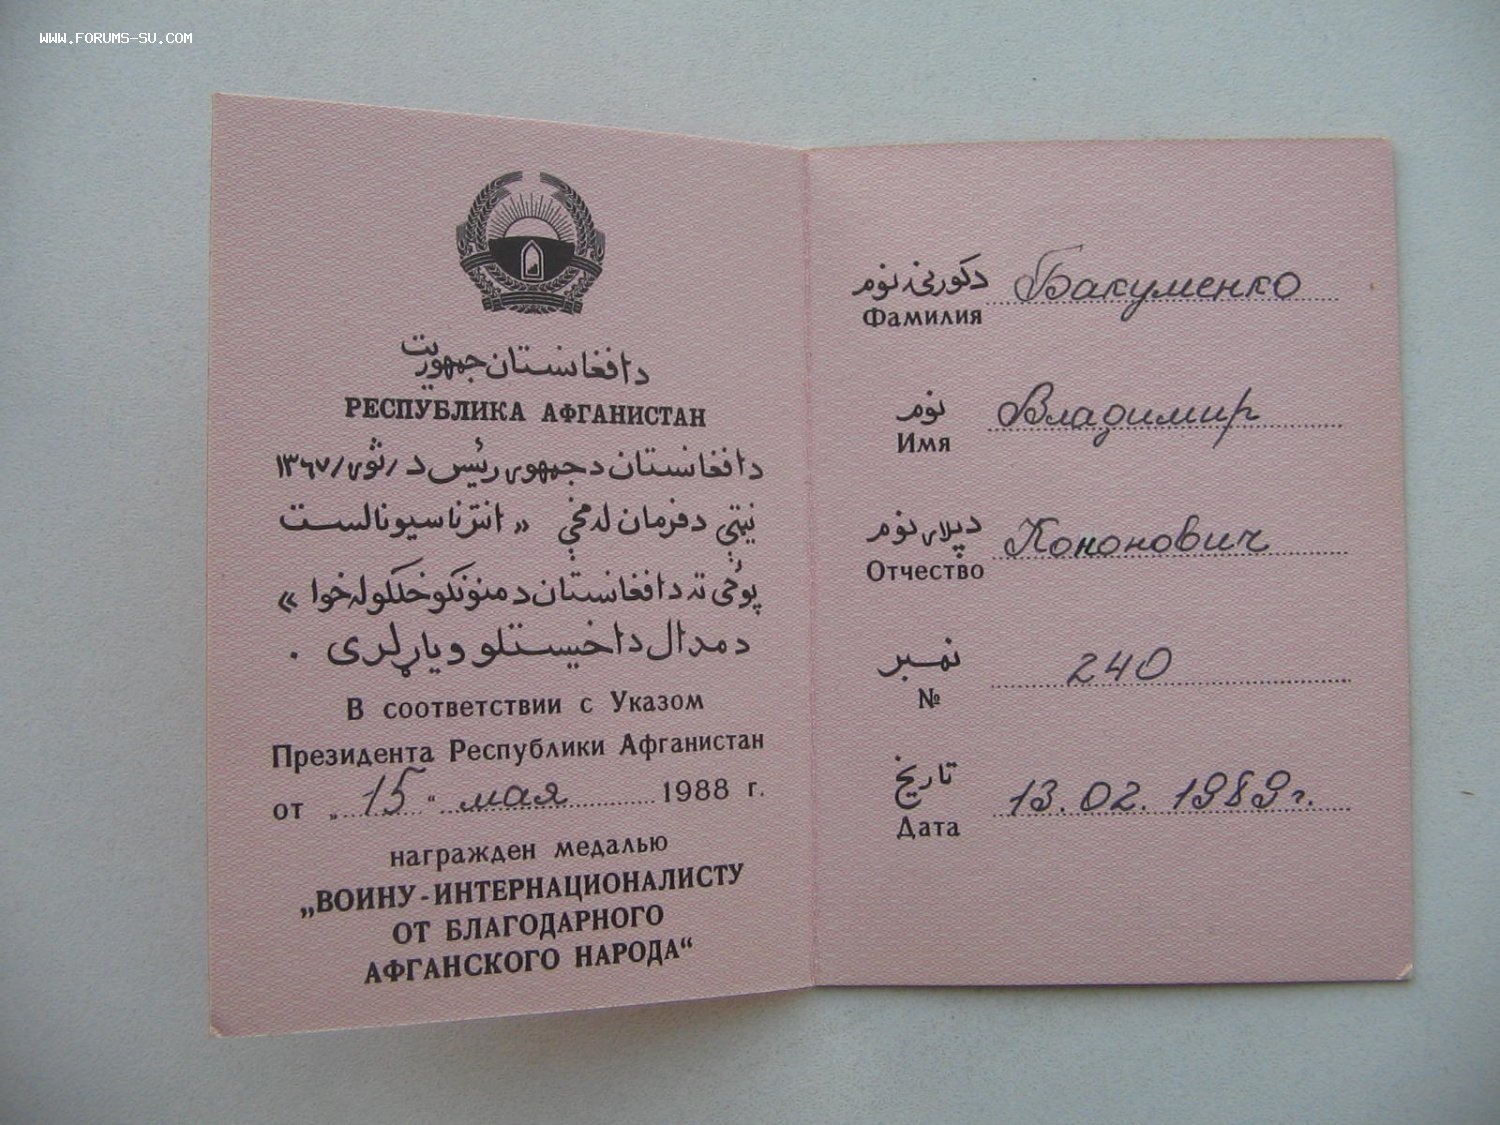 WWW.FORUMS-SU.COM
د افغانستان جمهوریت
РЕСПУБЛИКА АФГАНИСТАН
د افغانستان د جمهوری رئیس د / ثور / ۱۳۶۷
نیټې د فرمان له مخې « انترناسیونالست
پوځی ته د افغانستان د منونکو خلکو له خوا »
د مدال د اخیستلو ویاړ لری .
В соответствии с Указом
Президента Республики Афганистан
от „ 15 “ мая 1988 г.
награжден медалью
„ВОИНУ-ИНТЕРНАЦИОНАЛИСТУ
ОТ БЛАГОДАРНОГО
АФГАНСКОГО НАРОДА“
د کورنی نوم
Фамилия Бакуменко
نوم
Имя Владимир
د پلار نوم
Отчество Кононович
نمبر
№ 240
تاریخ
Дата 13.02.1989г.